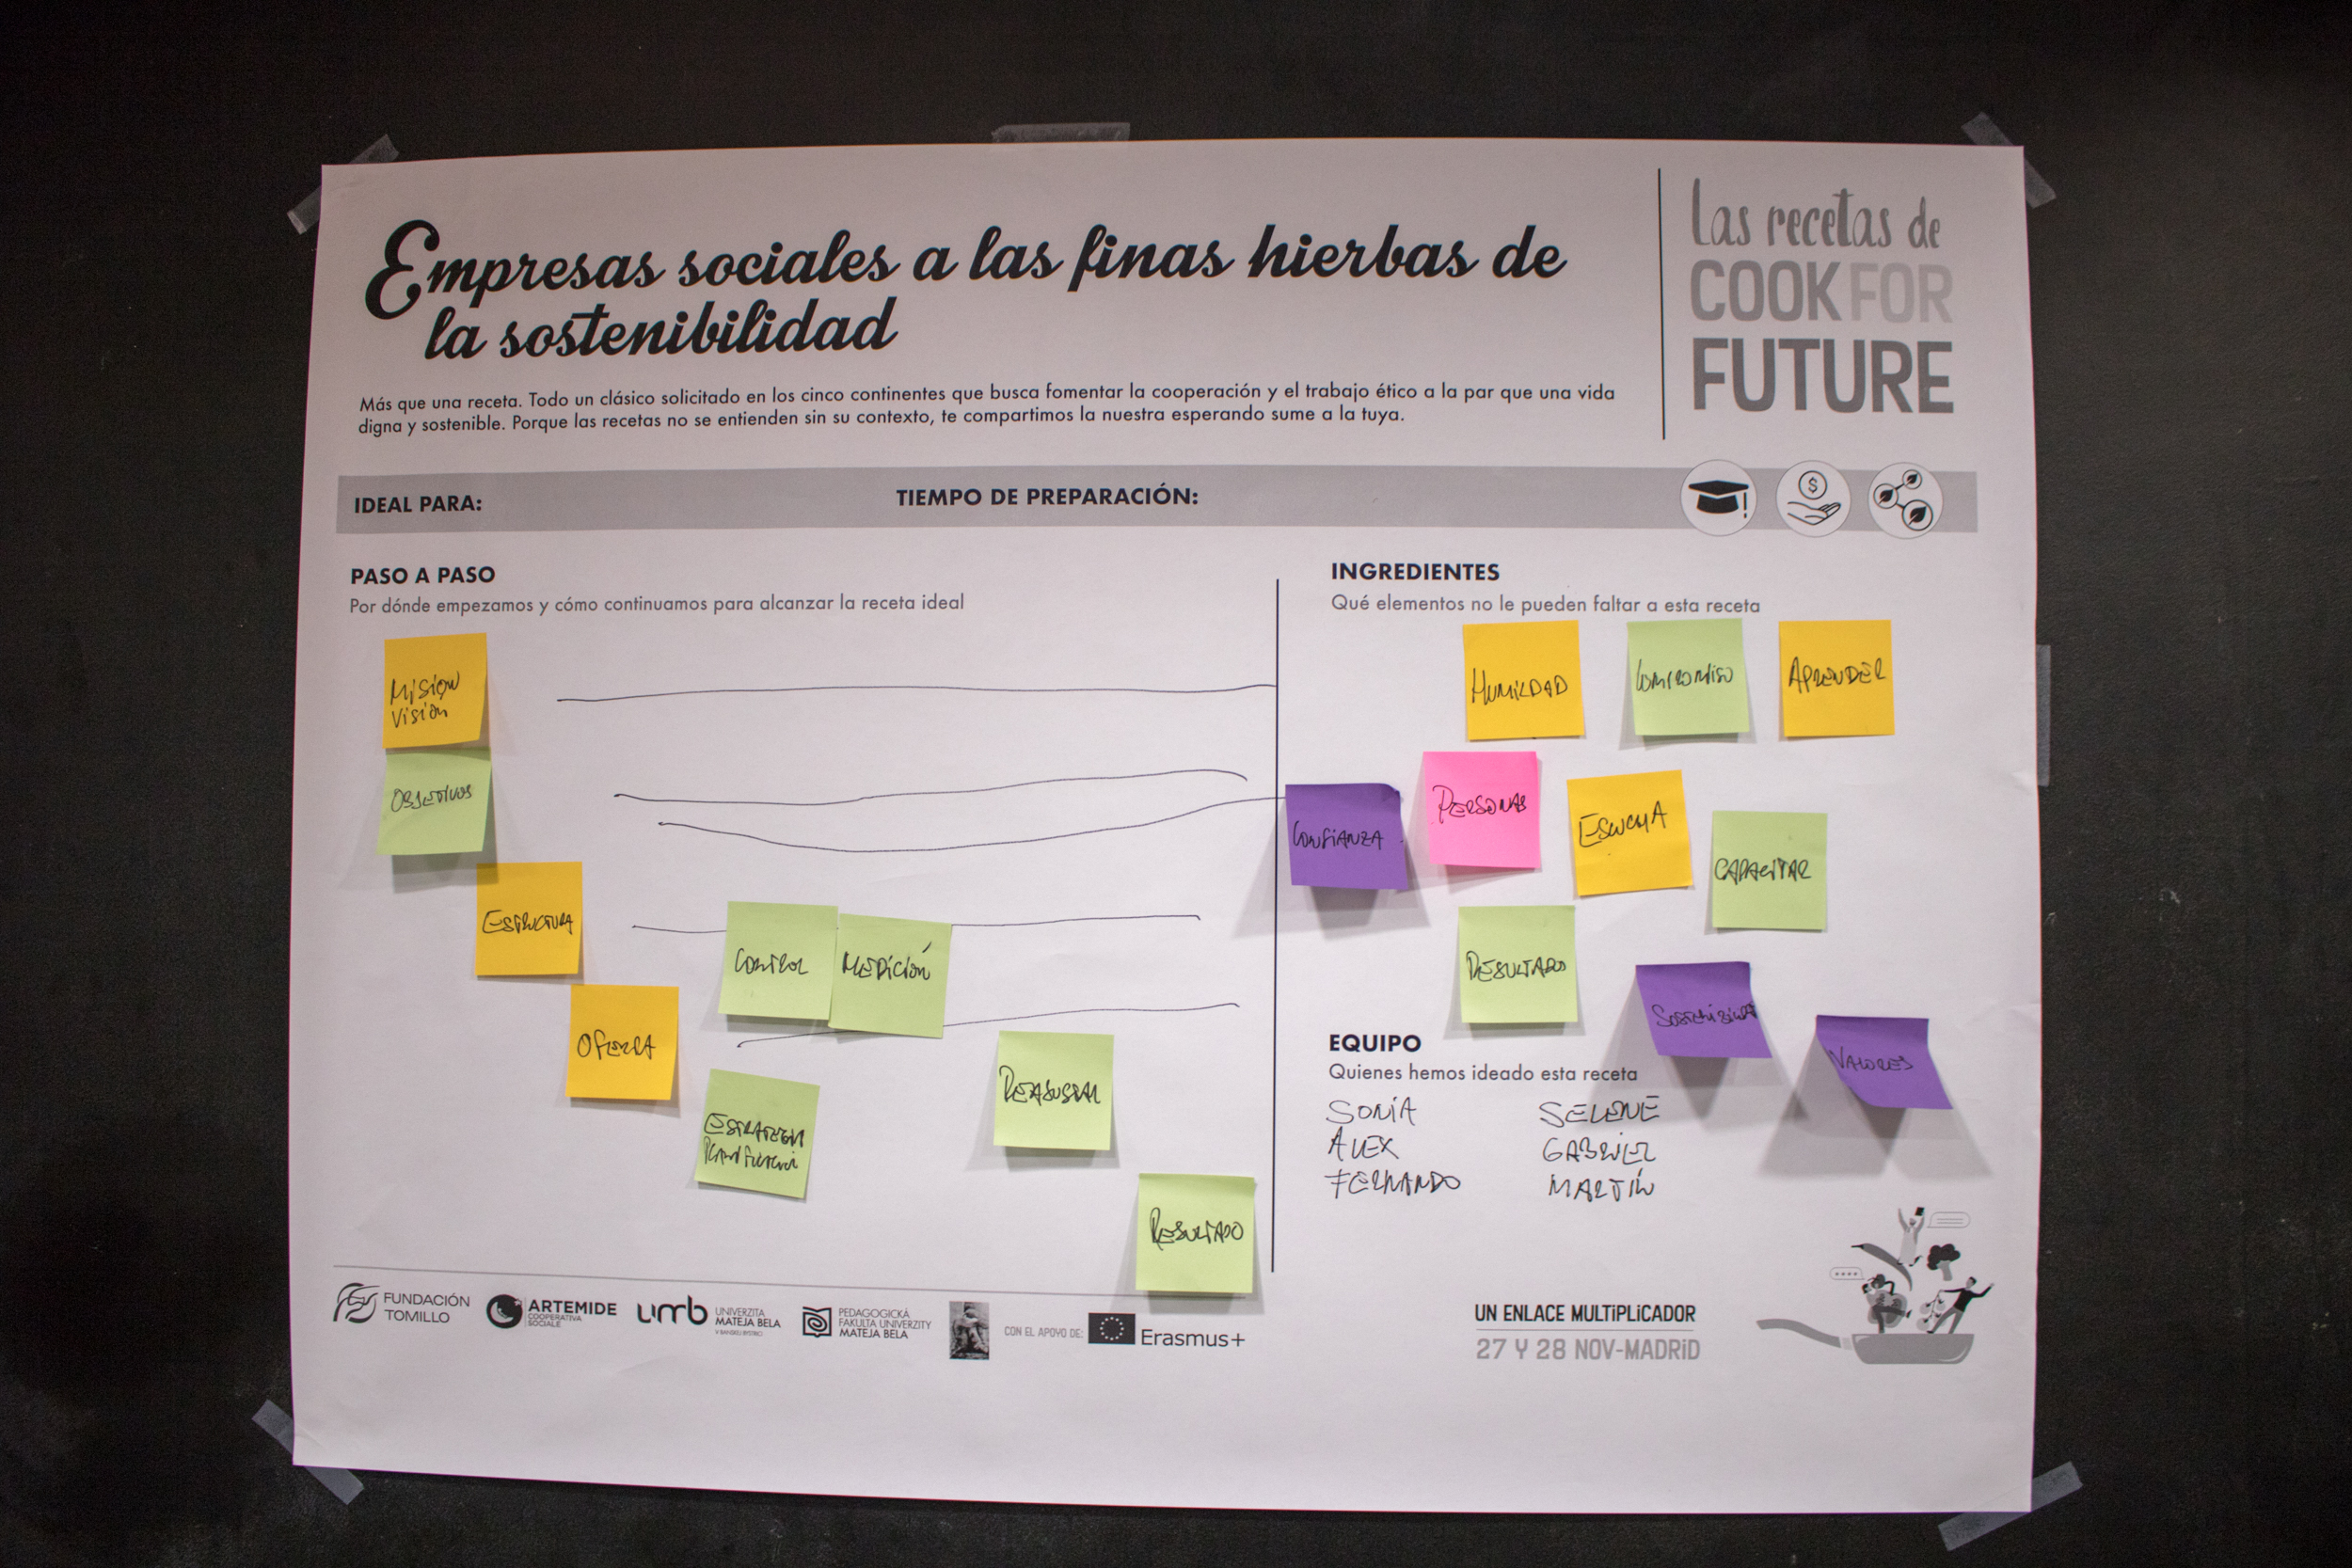 Empresas sociales a las finas hierbas de
la sostenibilidad
Más que una receta. Todo un clásico solicitado en los cinco continentes que busca fomentar la cooperación y el trabajo ético a la par que una vida
digna y sostenible. Porque las recetas no se entienden sin su contexto, te compartimos la nuestra esperando sume a la tuya.
Las recetas de
COOK FOR
FUTURE
IDEAL PARA:
TIEMPO DE PREPARACIÓN:
PASO A PASO
Por dónde empezamos y cómo continuamos para alcanzar la receta ideal
MISION
VISION
OBJETIVOS
ESTRUCTURA
OFERTA
CONTROL
MEDICIÓN
ESTRATEGIA
REAJUSTAR
RESULTADO
INGREDIENTES
Qué elementos no le pueden faltar a esta receta
HUMILDAD
COMPROMISO
APRENDER
CONFIANZA
PERSONAS
ESCUCHA
CAPACITAR
RESULTADO
VALORES
EQUIPO
Quienes hemos ideado esta receta
SONIA
SELENE
ALEX
GABRIEL
FERNANDO
MARTÍN
FUNDACIÓN
TOMILLO
ARTEMIDE
COOPERATIVA
SOCIALE
umb
UNIVERZITA
MATEJA BELA
V BANSKEJ BYSTRICI
PEDAGOGICKÁ
FAKULTA UNIVERZITY
MATEJA BELA
CON EL APOYO DE:
Erasmus+
UN ENLACE MULTIPLICADOR
27 Y 28 NOV-MADRID